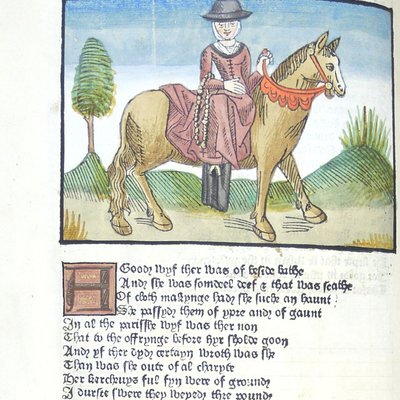 A Good wyf ther was of beside bathe
And she was somdeel deef & that was scathe
Of cloth makynge had she suche an haunt
She passyd them of ypre and of gaunt
In al the parisshe wyf was ther non
That to the offrynge before hyr sholde goon
And yf ther dyd certayn wroth was she
That was oute of al charyte
Her kerchevys ful fyn were of ground
I durste swere they weyed thre pound